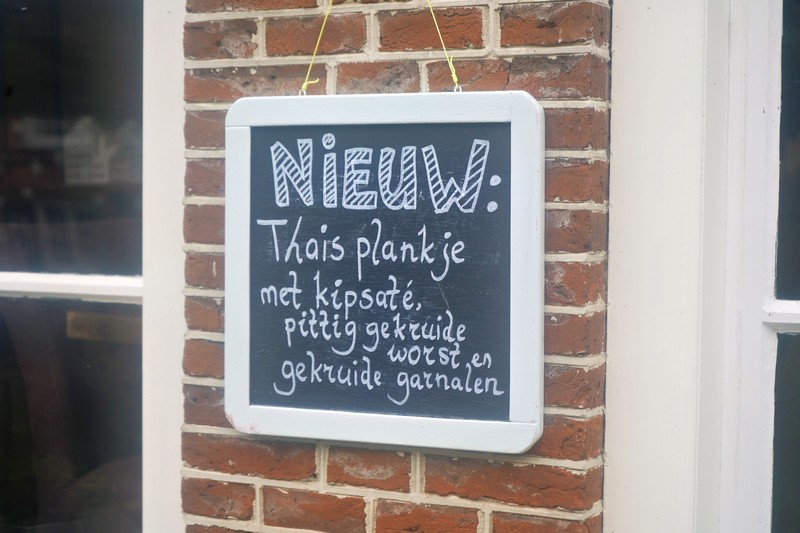 NiEUW:
Thais plankje
met kipsaté,
pittig gekruide
worst en
gekruide garnalen